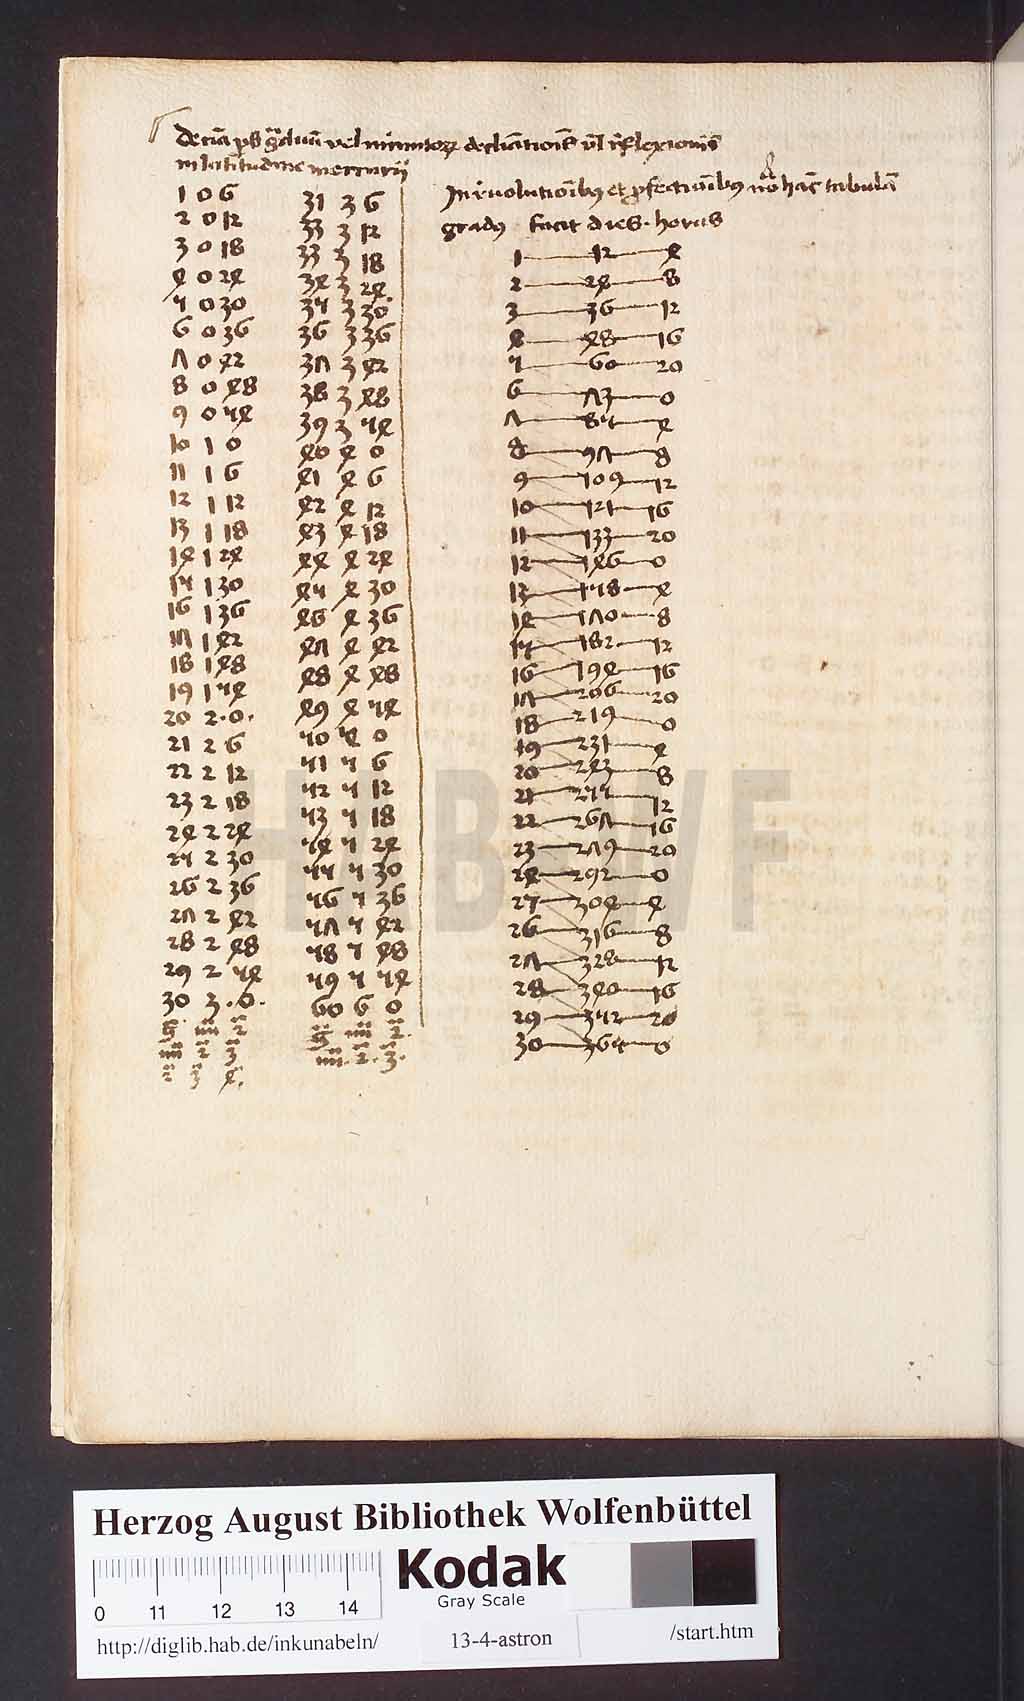 decima ps graduum vel minutorum declinationis vel reflexionis
in latitudine mercurij
1 0 6
2 0 12
3 0 18
4 0 24
5 0 30
6 0 36
7 0 42
8 0 48
9 0 54
10 1 0
11 1 6
12 1 12
13 1 18
14 1 24
15 1 30
16 1 36
17 1 42
18 1 48
19 1 54
20 2 · 0 ·
21 2 6
22 2 12
23 2 18
24 2 24
25 2 30
26 2 36
27 2 42
28 2 48
29 2 54
30 3 · 0 ·
g m 2
m 2 3
2 3 4
31 3 6
33 3 12
33 3 18
34 3 24
35 3 30
36 3 36
37 3 42
38 3 48
39 3 54
40 4 0
41 4 6
42 4 12
43 4 18
44 4 24
45 4 30
46 4 36
47 4 42
48 4 48
49 4 54
50 5 0
51 5 6
52 5 12
53 5 18
54 5 24
55 5 30
56 5 36
57 5 42
58 5 48
59 5 54
60 6 0
g m 2
m · 2 · 3 ·
In revolutionibus et profectionibus hanc tabulam
gradus facit dies · horas
1 12 4
2 24 8
3 36 12
4 48 16
5 60 20
6 73 0
7 85 4
8 97 8
9 109 12
10 121 16
11 133 20
12 146 0
13 158 4
14 170 8
15 182 12
16 194 16
17 206 20
18 219 0
19 231 4
20 243 8
21 255 12
22 267 16
23 279 20
24 292 0
25 304 4
26 316 8
27 328 12
28 340 16
29 352 20
30 365 0
HAB WF
Herzog August Bibliothek Wolfenbüttel
0 11 12 13 14
Kodak
Gray Scale
http://diglib.hab.de/inkunabeln/ 13-4-astron /start.htm